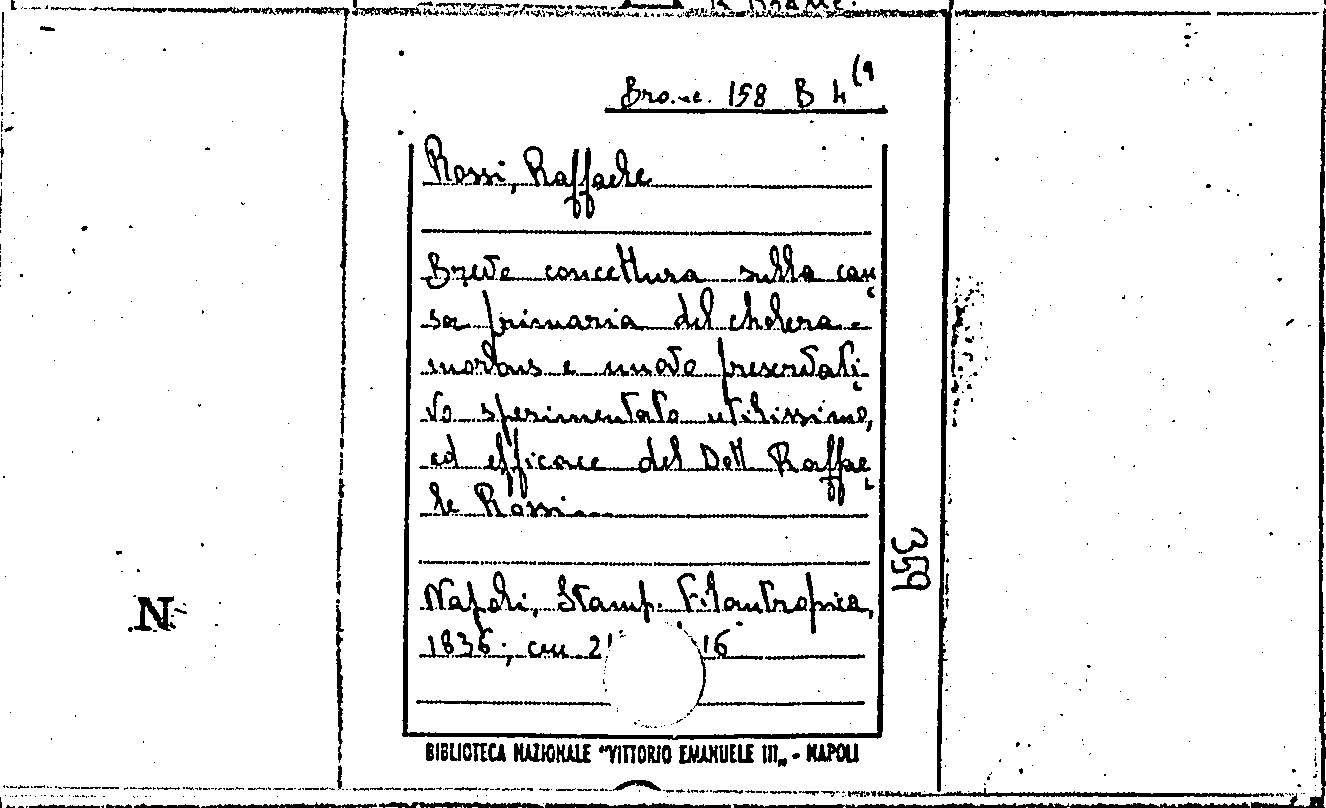 158 B 4 (9
Rossi, Raffaele
Breve concettura sulla cau
sa primaria del cholera-
morbus e nuovo preservati
vo sperimentato utilissimo,
ed efficace del Dott Raffae
le Rossi
Napoli, Stamp. Filantropica,
1836; cm 21 16
359
N
BIBLIOTECA NAZIONALE "VITTORIO EMANUELE III„ - NAPOLI